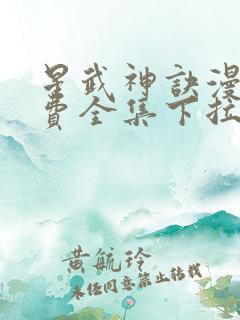 星武神訣漫
費全集下拉
黄航玲
未经同意禁止转载